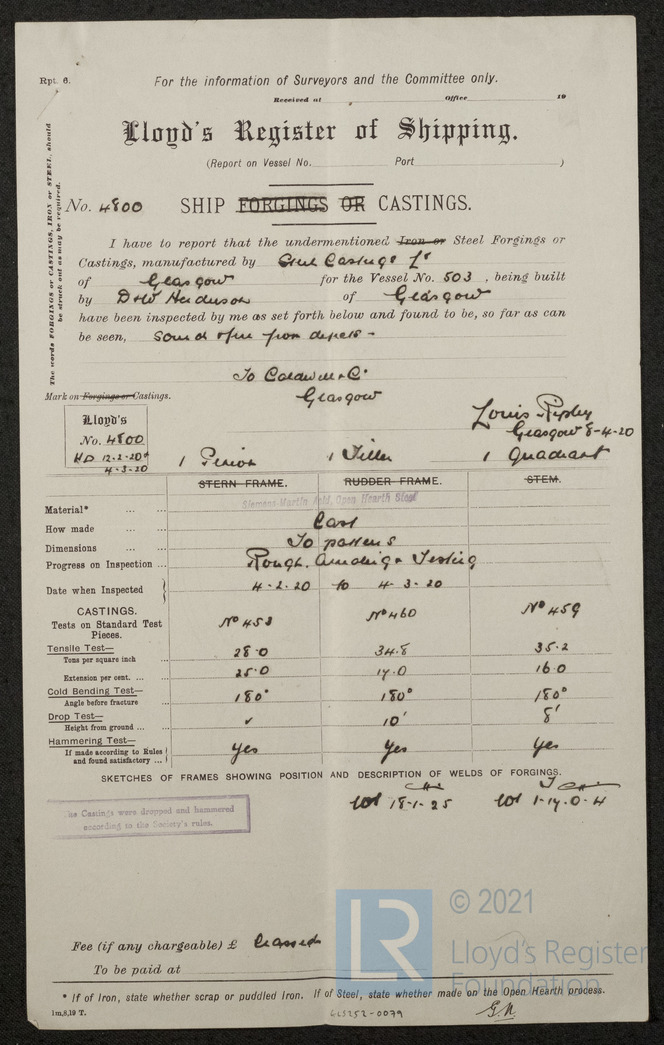 Rpt. 6.
For the information of Surveyors and the Committee only.
Received at Office 19
Lloyd's Register of Shipping.
(Report on Vessel No. Port )
The words FORGINGS or CASTINGS, IRON or STEEL, should
be struck out as may be required.
No. 4800 SHIP FORGINGS OR CASTINGS.
I have to report that the undermentioned Iron or Steel Forgings or
Castings, manufactured by Steel Castings Ld
of Glasgow for the Vessel No. 503, being built
by D&W Henderson of Glasgow
have been inspected by me as set forth below and found to be, so far as can
be seen, Sound & free from defects -
To Caldwell & Co
Glasgow
Mark on Forgings or Castings.
Lloyd's
No. 4800
HD 12-2-20
4-3-20
Louis Ripley
Glasgow 8-4-20
1 1 Tiller 1 Quadrant
STERN FRAME. RUDDER FRAME. STEM.
Siemens-Martin Acid, Open Hearth Steel
Material* ... ...
How made ... Cast
Dimensions ... ... To patterns
Progress on Inspection ... Rough, Annealing & Testing
Date when Inspected 4-2-20 to 4-3-20
CASTINGS.
Tests on Standard Test
Pieces.
No 453 No 460 No 459
Tensile Test—
Tons per square inch ... 28.0 34.8 35.2
Extension per cent. ... ... 25.0 17.0 16.0
Cold Bending Test—
Angle before fracture 180° 180° 180°
Drop Test—
Height from ground ... ... ✓ 10' 8'
Hammering Test—
If made according to Rules
and found satisfactory ... yes yes yes
SKETCHES OF FRAMES SHOWING POSITION AND DESCRIPTION OF WELDS OF FORGINGS.
Wt 18-1-25 Wt 1-17-0-4
The Castings were dropped and hammered
according to the Society's rules.
© 2021
Lloyd's Register
Foundation
LR
Fee (if any chargeable) £
To be paid at
* If of Iron, state whether scrap or puddled Iron. If of Steel, state whether made on the Open Hearth process.
1m,8,19 T.
GLS252-0079